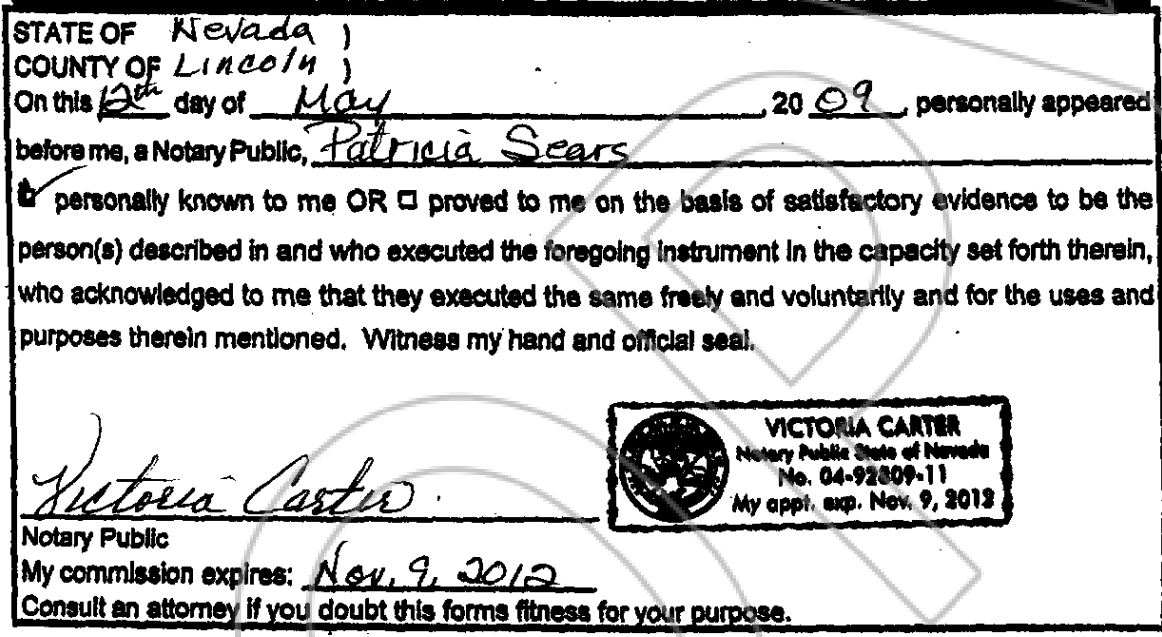 STATE OF Nevada )
COUNTY OF Lincoln )
On this 12th day of May, 20 09, personally appeared
before me, a Notary Public, Patricia Sears
☑ personally known to me OR ☐ proved to me on the basis of satisfactory evidence to be the
person(s) described in and who executed the foregoing instrument in the capacity set forth therein,
who acknowledged to me that they executed the same freely and voluntarily and for the uses and
purposes therein mentioned. Witness my hand and official seal.
VICTORIA CARTER
Notary Public State of Nevada
No. 04-92809-11
My appt. exp. Nov. 9, 2012
Victoria Carter
Notary Public
My commission expires: Nov. 9, 2012
Consult an attorney if you doubt this forms fitness for your purpose.